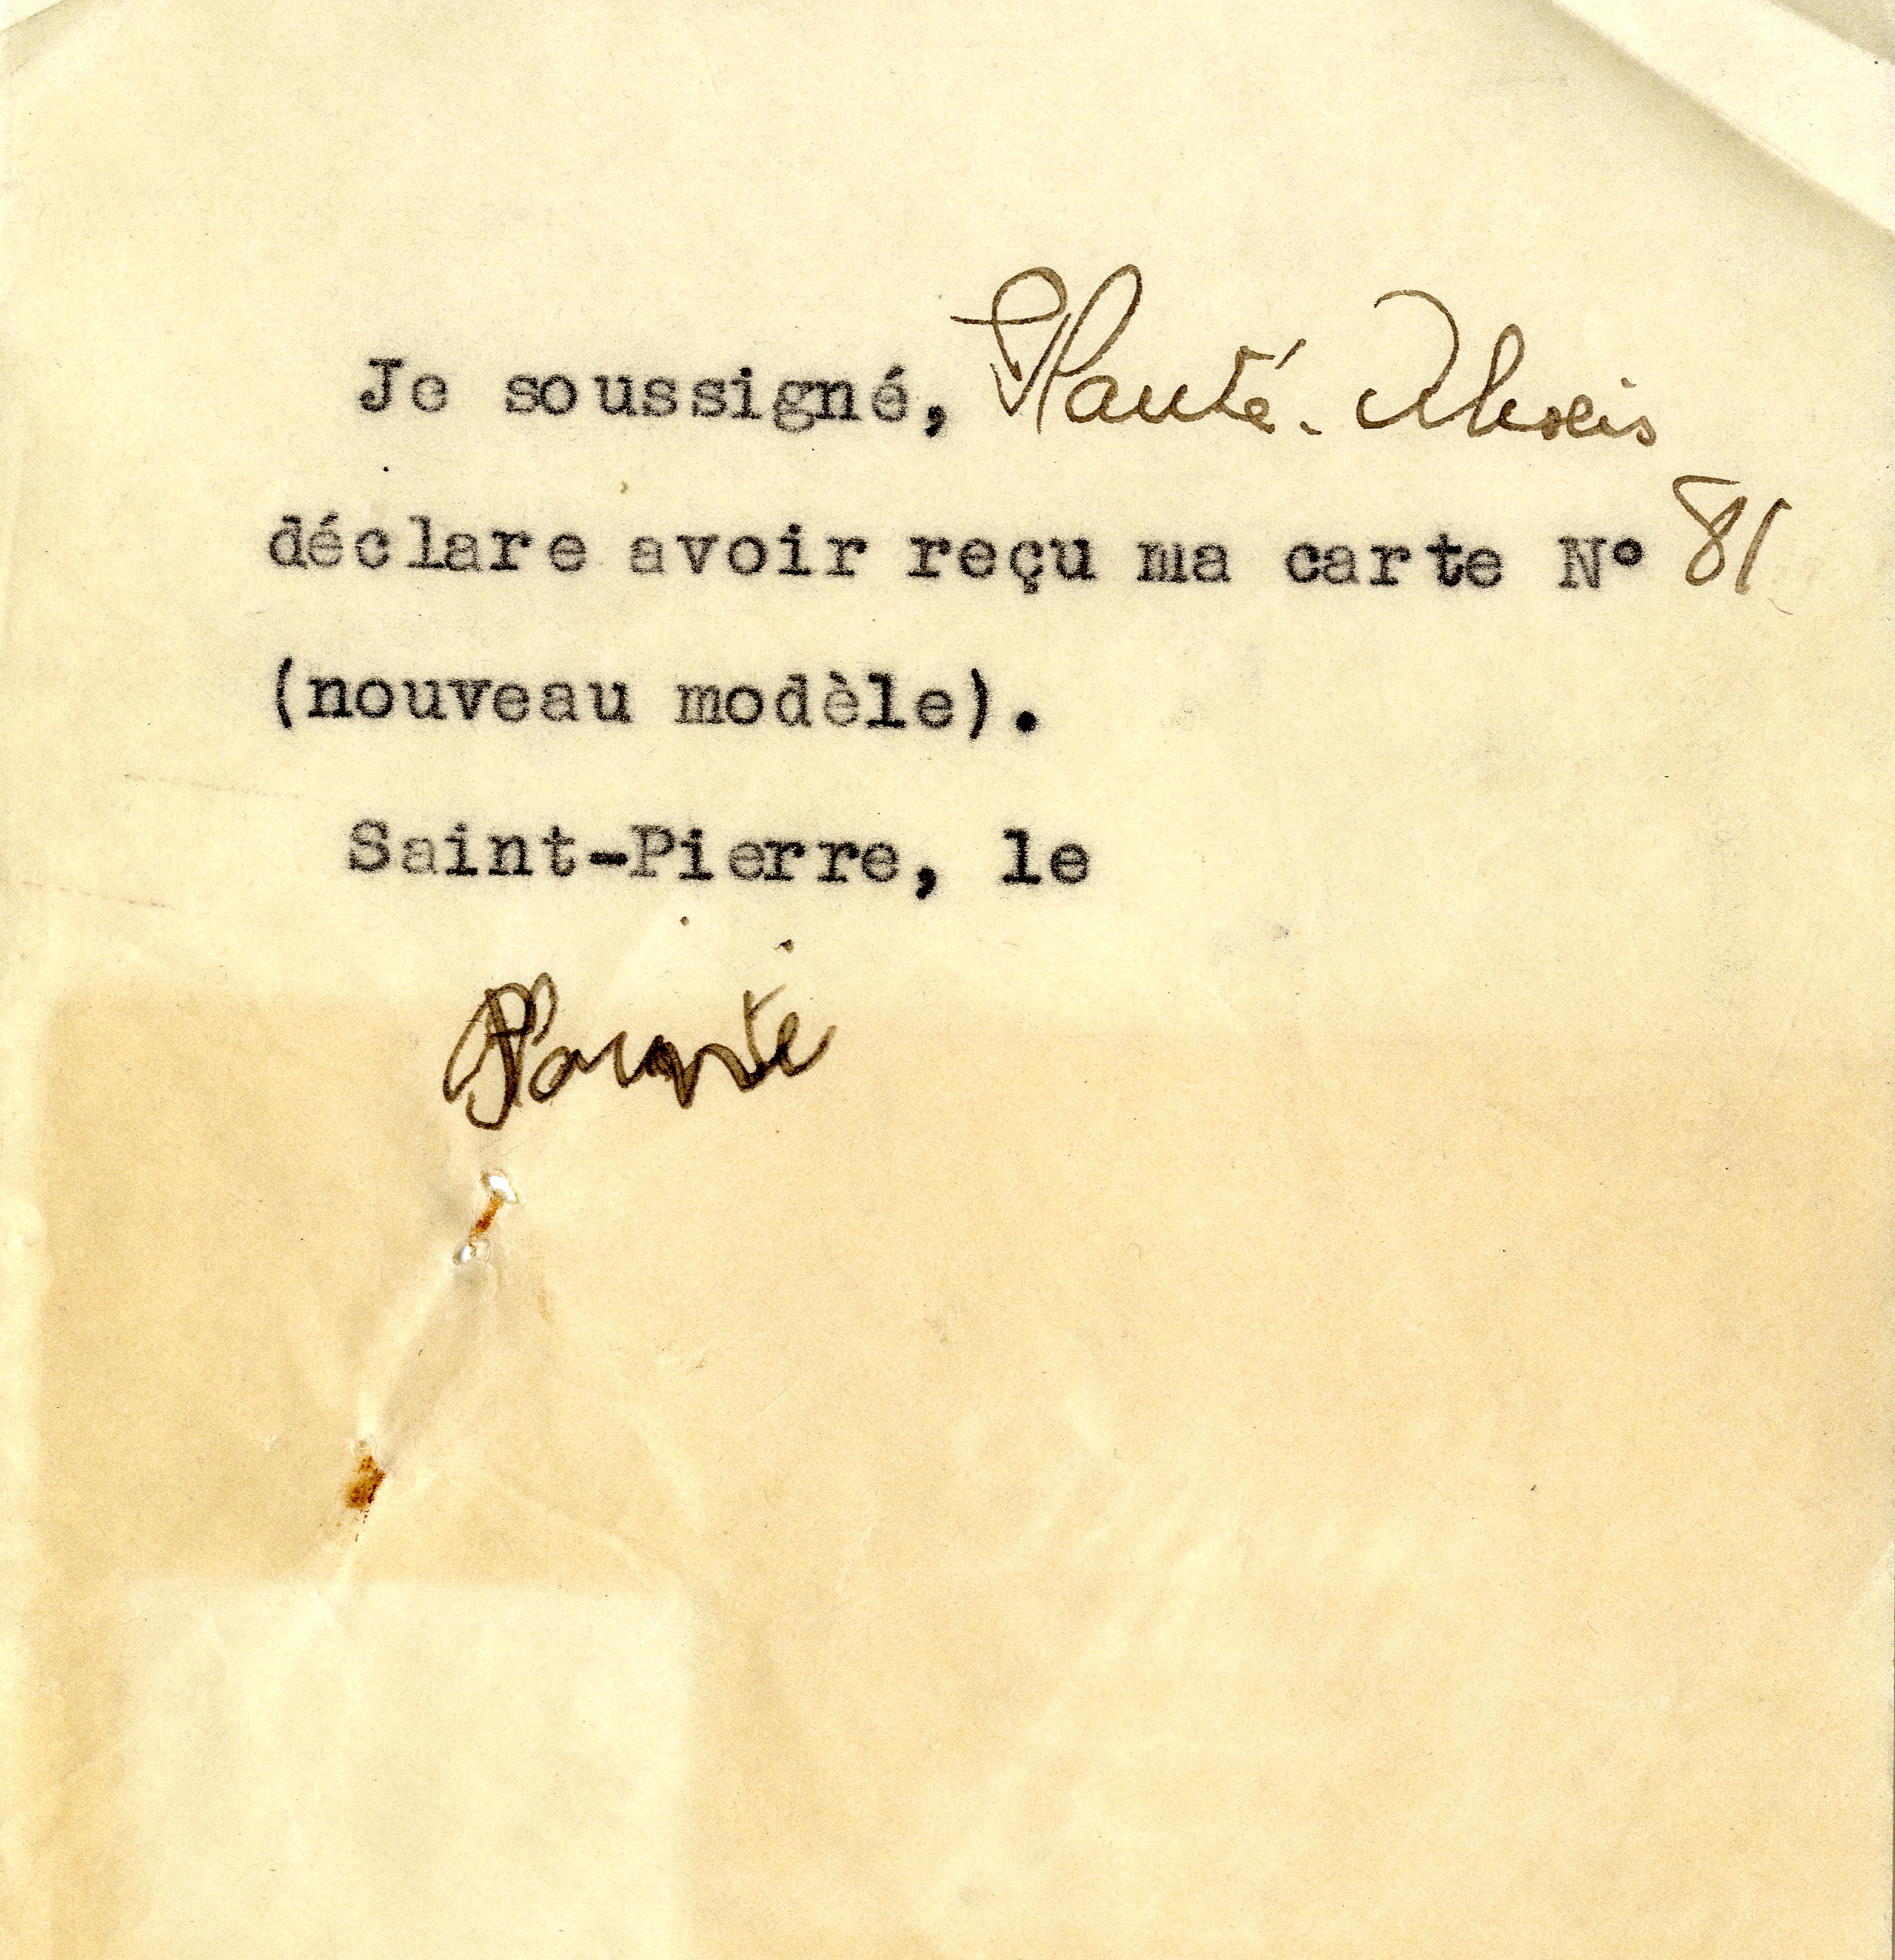 Je soussigné, Planté. Alexis
déclare avoir reçu ma carte N° 81
(nouveau modèle).
Saint-Pierre, le